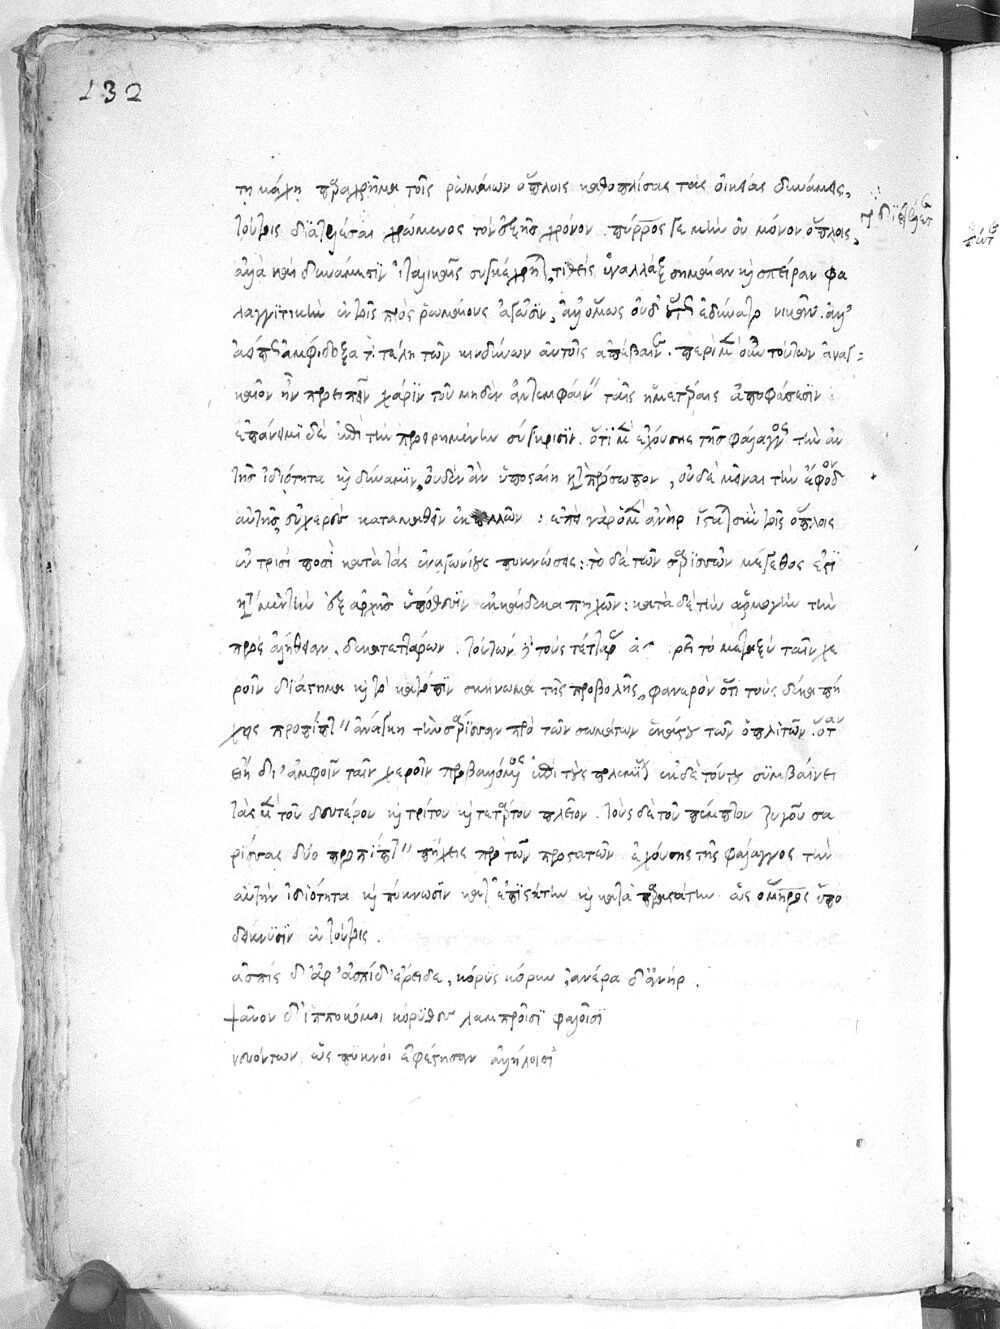 132
τη μάχη παραχρῆμα τοῖς ῥωμαίων ὅπλοις καθοπλίσας τὰς οἰκείας δυνάμεις,
τούτοις διατελεῖται χρώμενος τὸν ἑξῆς χρόνον. πύρρος γε μὴν οὐ μόνον ὅπλοις,
ἀλλὰ καὶ δυνάμεσιν ἰταλικαῖς συγκέχρηται, τιθεὶς ἐναλλὰξ σημαίαν καὶ σπεῖραν φα
λαγγιτικὴν ἐν τοῖς πρὸς ῥωμαίους ἀγῶσιν, ἀλλ' ὅμως οὐδ' οὕτως ἐδύνατο νικᾶν. ἀλλ'
ἀεί πως ἀμφίδοξα τὰ τέλη τῶν κινδύνων αὐτοῖς ἀπέβαινε. περὶ μὲν οὖν τούτων ἀναγ=
καῖον ἦν προειπεῖν χάριν τοῦ μηδὲν ἀντεμφαίνειν ταῖς ἡμετέραις ἀποφάσεσιν:
ἐπάνειμι δὲ ἐπὶ τὴν προειρημένην σύγκρισιν. ὅτι μὲν ἐχούσης τῆς φάλαγγος τὴν αὐ
τῆς ἰδιότητα καὶ δύναμιν, οὐδὲν ἂν ὑποσταίη κατὰ πρόσωπον, οὐδὲ μεῖναι τὴν ἔφοδον
αὐτῆς, εὐχερὲς καταμαθεῖν ἐκ πολλῶν: ἐπεὶ γὰρ ὁ μὲν ἀνὴρ ἵσταται σὺν τοῖς ὅπλοις
ἐν τρισὶ ποσὶ κατὰ τὰς ἐναγωνίους πυκνώσεις: τὸ δὲ τῶν σαρισσῶν μέγεθος ἐστὶ
κατὰ μὲν τὴν ἐξ ἀρχῆς ὑπόθεσιν ἑκκαίδεκα πηχῶν: κατὰ δὲ τὴν ἁρμογὴν τὴν
πρὸς ἀλήθειαν, δεκατεττάρων. τούτων δὲ τοὺς τέτταρας ἀφαιρεῖ τὸ μεταξὺ ταῖν χε
ροῖν διάστημα καὶ τὸ κατόπιν σήκωμα τῆς προβολῆς, φανερὸν ὅτι τοὺς δέκα πή
χεις προπίπτειν ἀνάγκη τὴν σάρισσαν πρὸ τῶν σωμάτων ἑκάστου τῶν ὁπλιτῶν. ὅταν
εἴη δι' ἀμφοῖν ταῖν χεροῖν προβαλόμενος ἐπὶ τοὺς πολεμίους ἐκ δὲ τούτου συμβαίνει
τὰς μὲν τοῦ δευτέρου καὶ τρίτου καὶ τετάρτου πλεῖον. τοὺς δὲ τοῦ πέμπτου ζυγοῦ σα
ρίσσας δύο προπίπτειν πήχεις πρὸ τῶν προστατῶν ἐχούσης τῆς φάλαγγος τὴν
αὐτὴν ἰδιότητα καὶ πύκνωσιν κατ' ἐπιστάτην καὶ κατὰ παραστάτην ὡς ὅμηρος ὑπο
δείκνυσιν ἐν τούτοις.
ἀσπὶς δ' ἄρ' ἀσπίδ' ἔρειδε, κόρυς κόρυν, ἀνέρα δ' ἀνήρ.
ψαῦον δ' ἱππόκομοι κόρυθες λαμπροῖσι φάλοισι
νευόντων, ὡς πυκνοὶ ἐφέστησαν ἀλλήλοισι